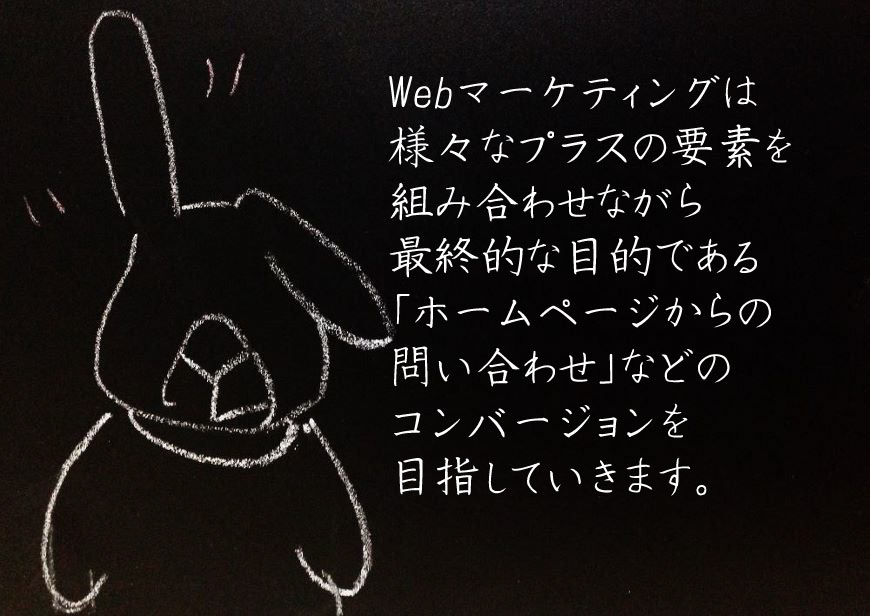 Webマーケティングは
様々なプラスの要素を
組み合わせながら
最終的な目的である
「ホームページからの
問い合わせ」などの
コンバージョンを
目指していきます。